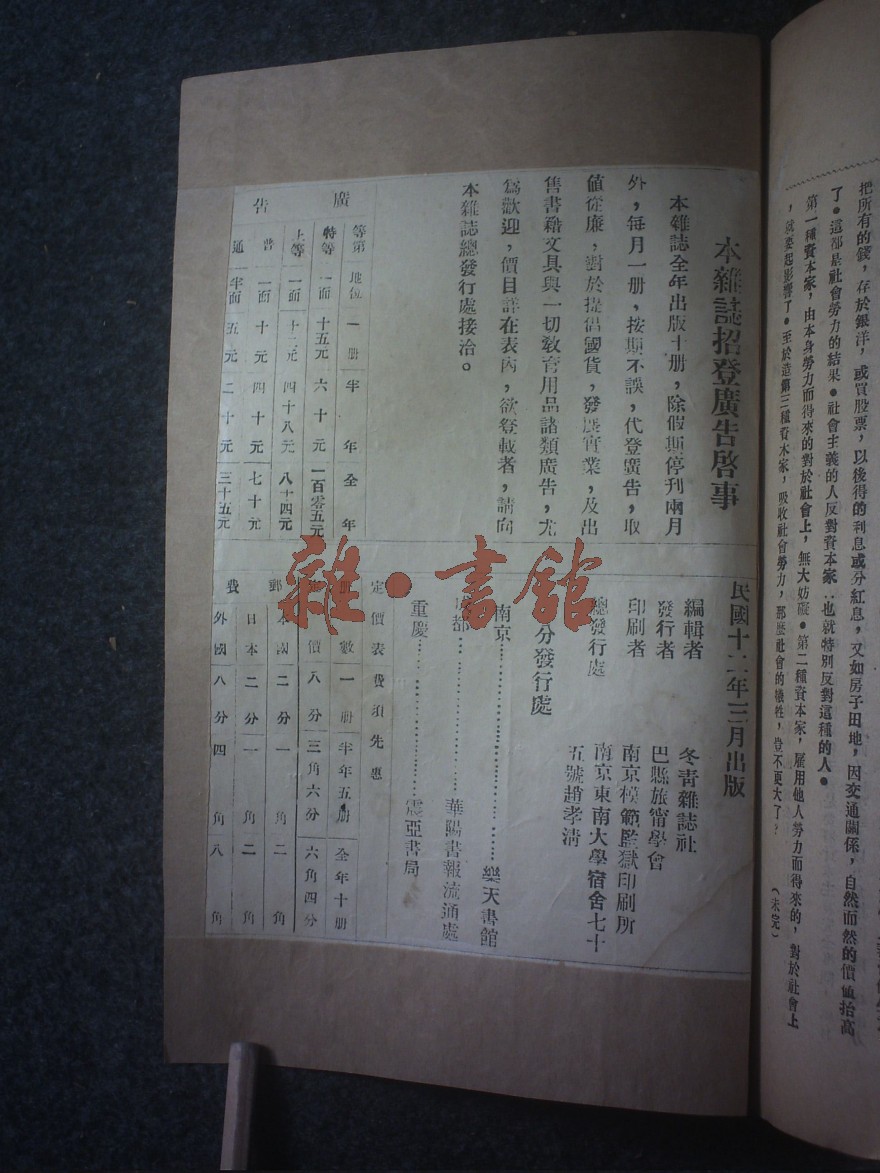 把所有的錢，存於銀洋，或買股票，以後得的利息或分紅息，又如房子田地，因交通關係，自然而然的價值抬高
了。這都是社會勞力的結果。社會主義的人反對資本家：也就特別反對這種的人。
第一種資本家，由本身勞力而得來的對於社會上，無大妨礙。第二種資本家，雇用他人勞力而得來的，對於社會上
，就要起影響了。至於這第三種資本家，吸收社會勞力，那麼社會的犧牲，豈不更大了？
（未完）
本雜誌招登廣告啓事
本雜誌全年出版十册，除假期停刊兩月
外，每月一册，按期不誤，代登廣告，取
值從廉，對於提倡國貨，發展實業，及出
售書籍文具與一切教育用品諸類廣告，尤
爲歡迎，價目詳在表內，欲登載者，請向
本雜誌總發行處接洽。
廣告
等第 地位 一册 半年 全年
特等 一面 十五元 六十元 一百零五元
上等 一面 十二元 四十八元 八十四元
普 一面 十元 四十元 七十元
通 半面 五元 二十元 三十五元
民國十二年三月出版
編輯者 冬青雜誌社
發行者 巴縣旅甯學會
印刷者 南京模範監獄印刷所
總發行處 南京東南大學宿舍七十
五號趙孝清
分發行處
南京 樂天書館
成都 華陽書報流通處
重慶 震亞書局
定價表費須先惠
册數 一册 半年五册 全年十册
定價 八分 三角六分 六角四分
郵費
本國 二分 一角 二角
日本 二分 一角 二角
外國 八分 四角 八角
雜·書館